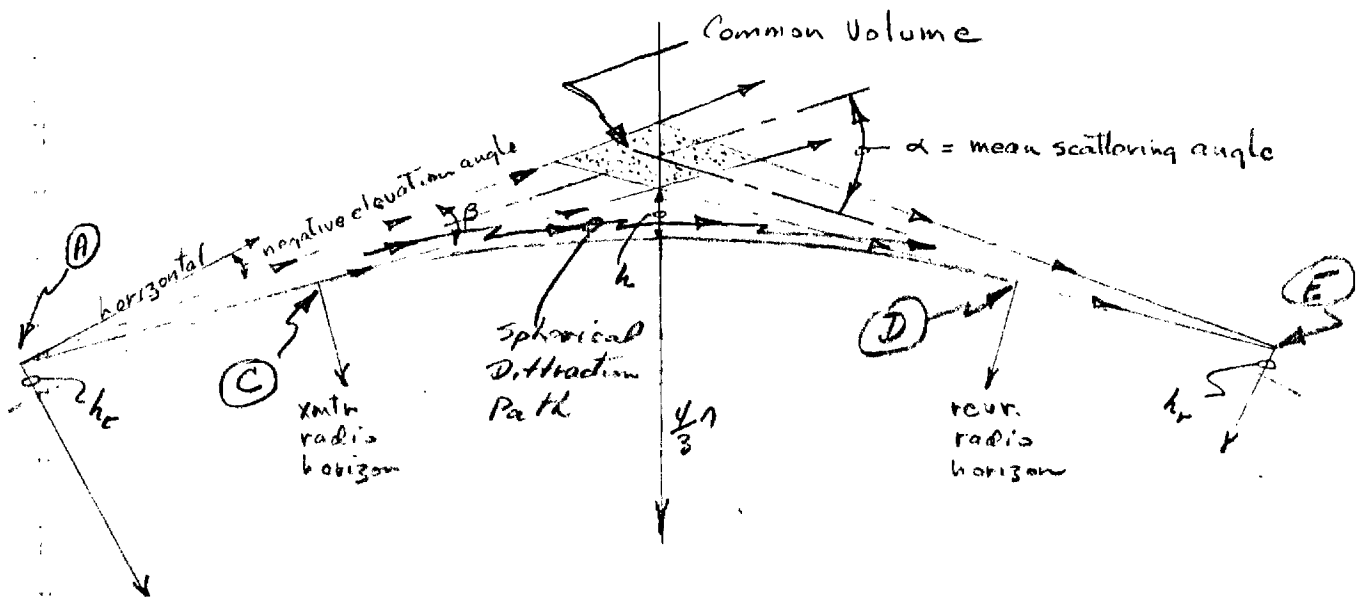 Common Volume
α = mean scattering angle
negative elevation angle
horizontal
β
A
h
E
D
C
Spherical
Diffraction
Path
xmtr
radio
horizon
rcvr.
radio
horizon
h_r
4/3